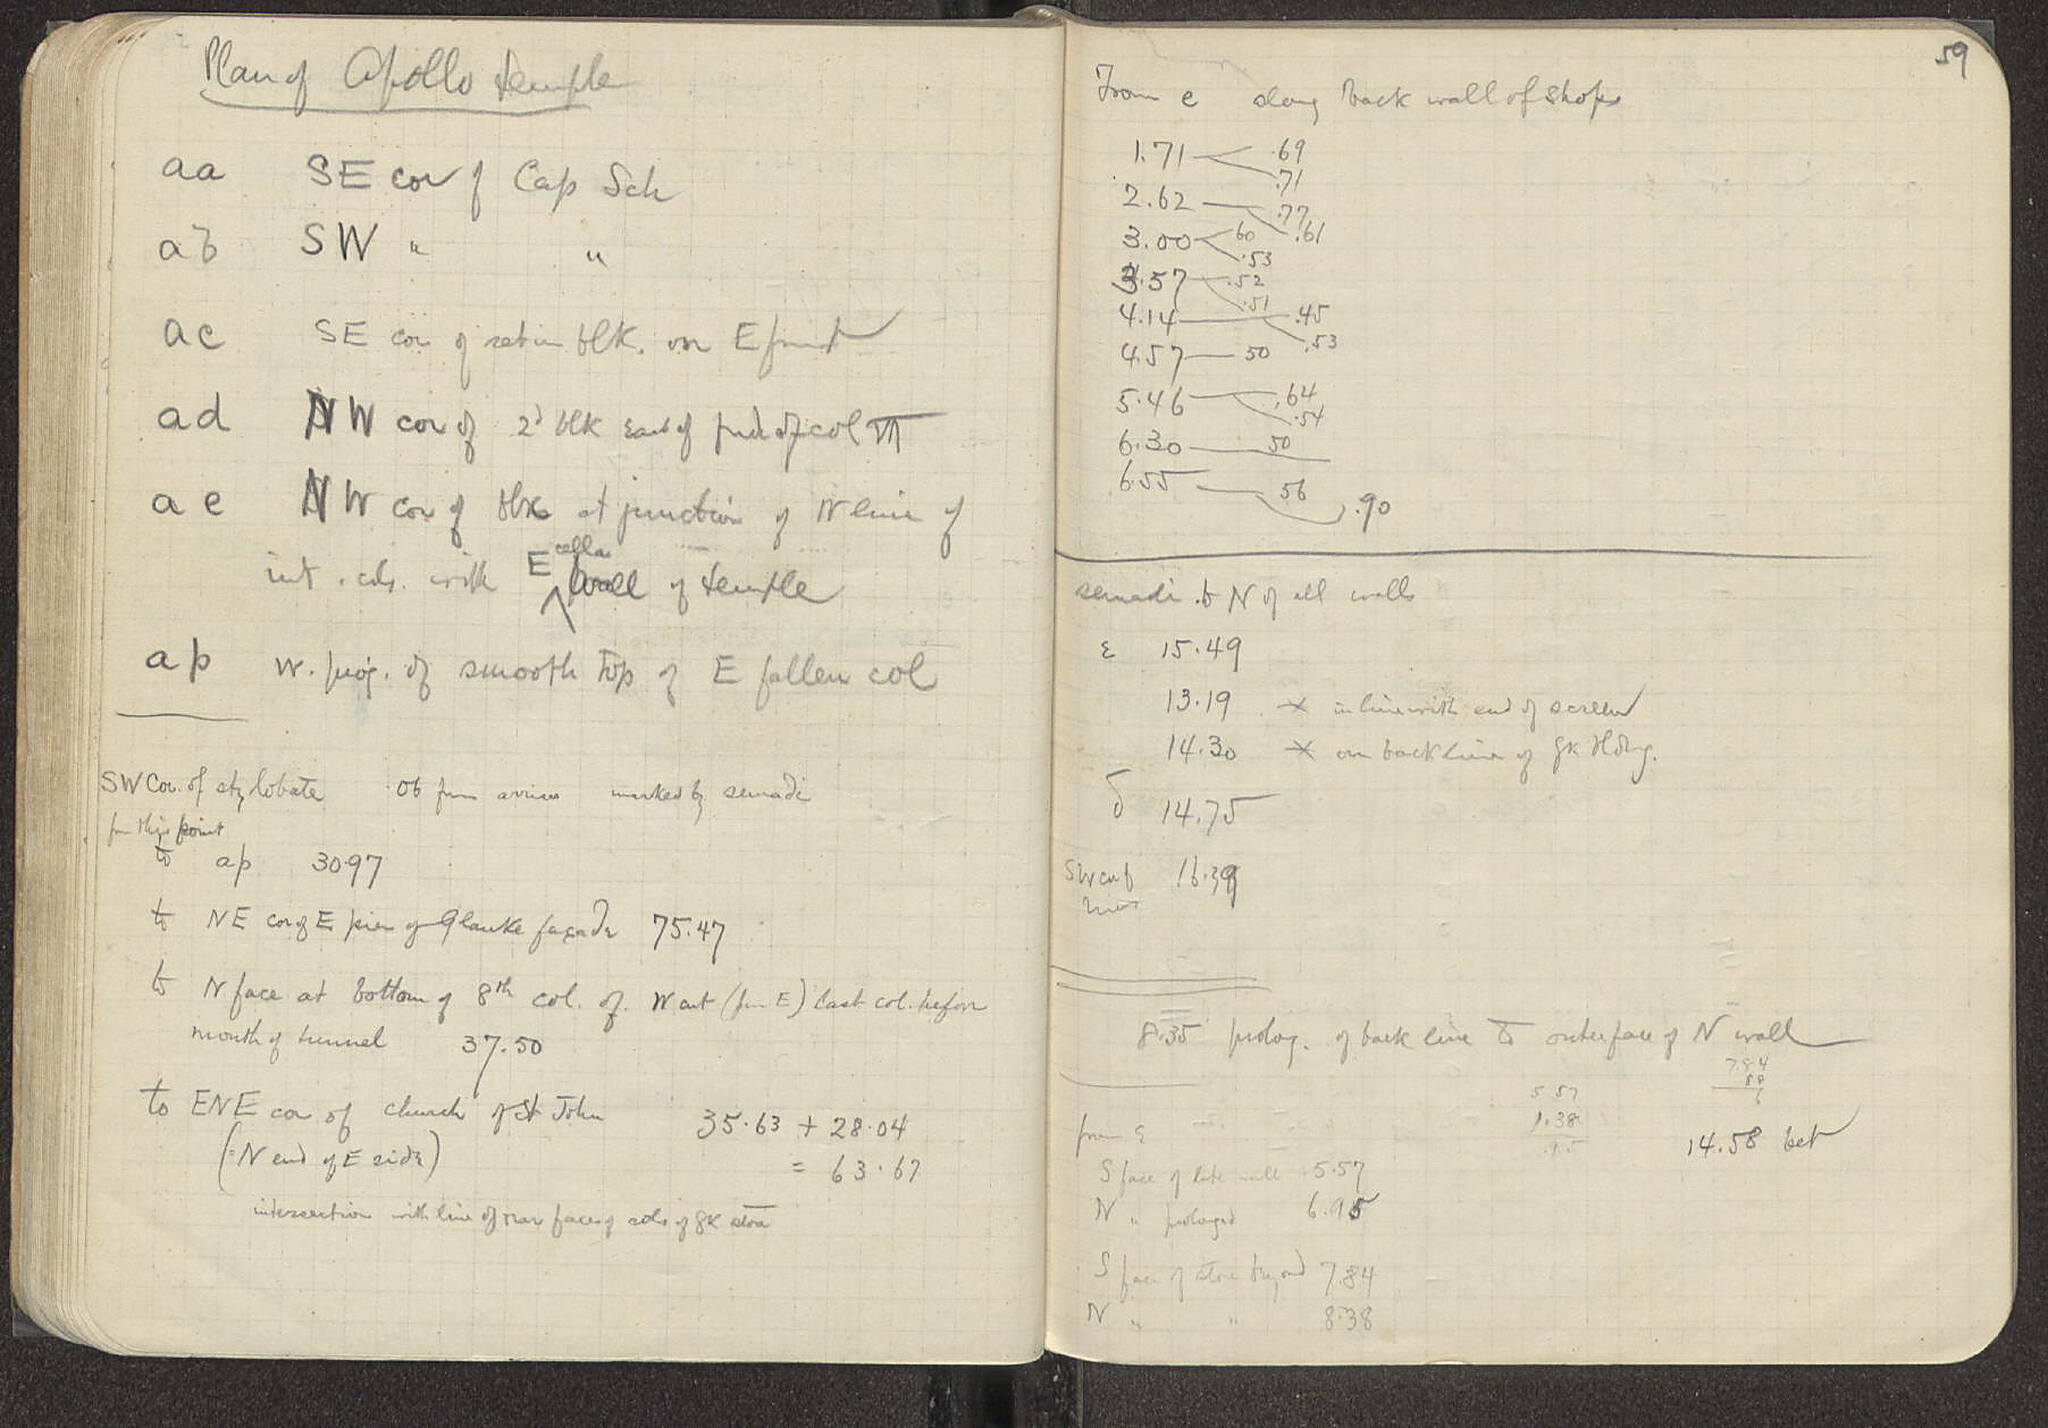 Plan of Apollo temple
aa SE cor of Cap Sch
ab SW " "
ac SE cor of return blk. on E front
ad NW cor of 2d blk east of of col
ae NW cor of blk at junction of N line of
int. cols. with E cella wall of temple
ap W. proj. of smooth top of E fallen col
SW Cor. of stylobate .06 from arrises marked by semadi
from this point
to ap 30.97
to NE cor of E pier of Glauke façade 75.47
to N face at bottom of 8th col. of W cut (from E) last col. before
mouth of tunnel 37.50
to ENE cor of church of St John 35.63 + 28.04
(=N end of E side) = 63.67
intersection with line of rear face of cols of gk stoa
59
From e along back wall of shops
1.71 .69
.71
2.62 .77
.61
3.00 60
.53
3.57 .52
.51
4.14 .45
.53
4.57 50
5.46 .64
.54
6.30 50
6.55 56
.90
semadi to N of all walls
ε 15.49
13.19 x in line with end of screen
14.30 x on back line of gk bldg.
δ 14.75
SW 16.39
8.35 prolog. of back line to outer face of N wall
7.84
5.57
1.38
from ε 14.58 bet
S face of late wall 5.57
N " prolonged 6.95
S face of store beyond 7.84
N " " 8.38